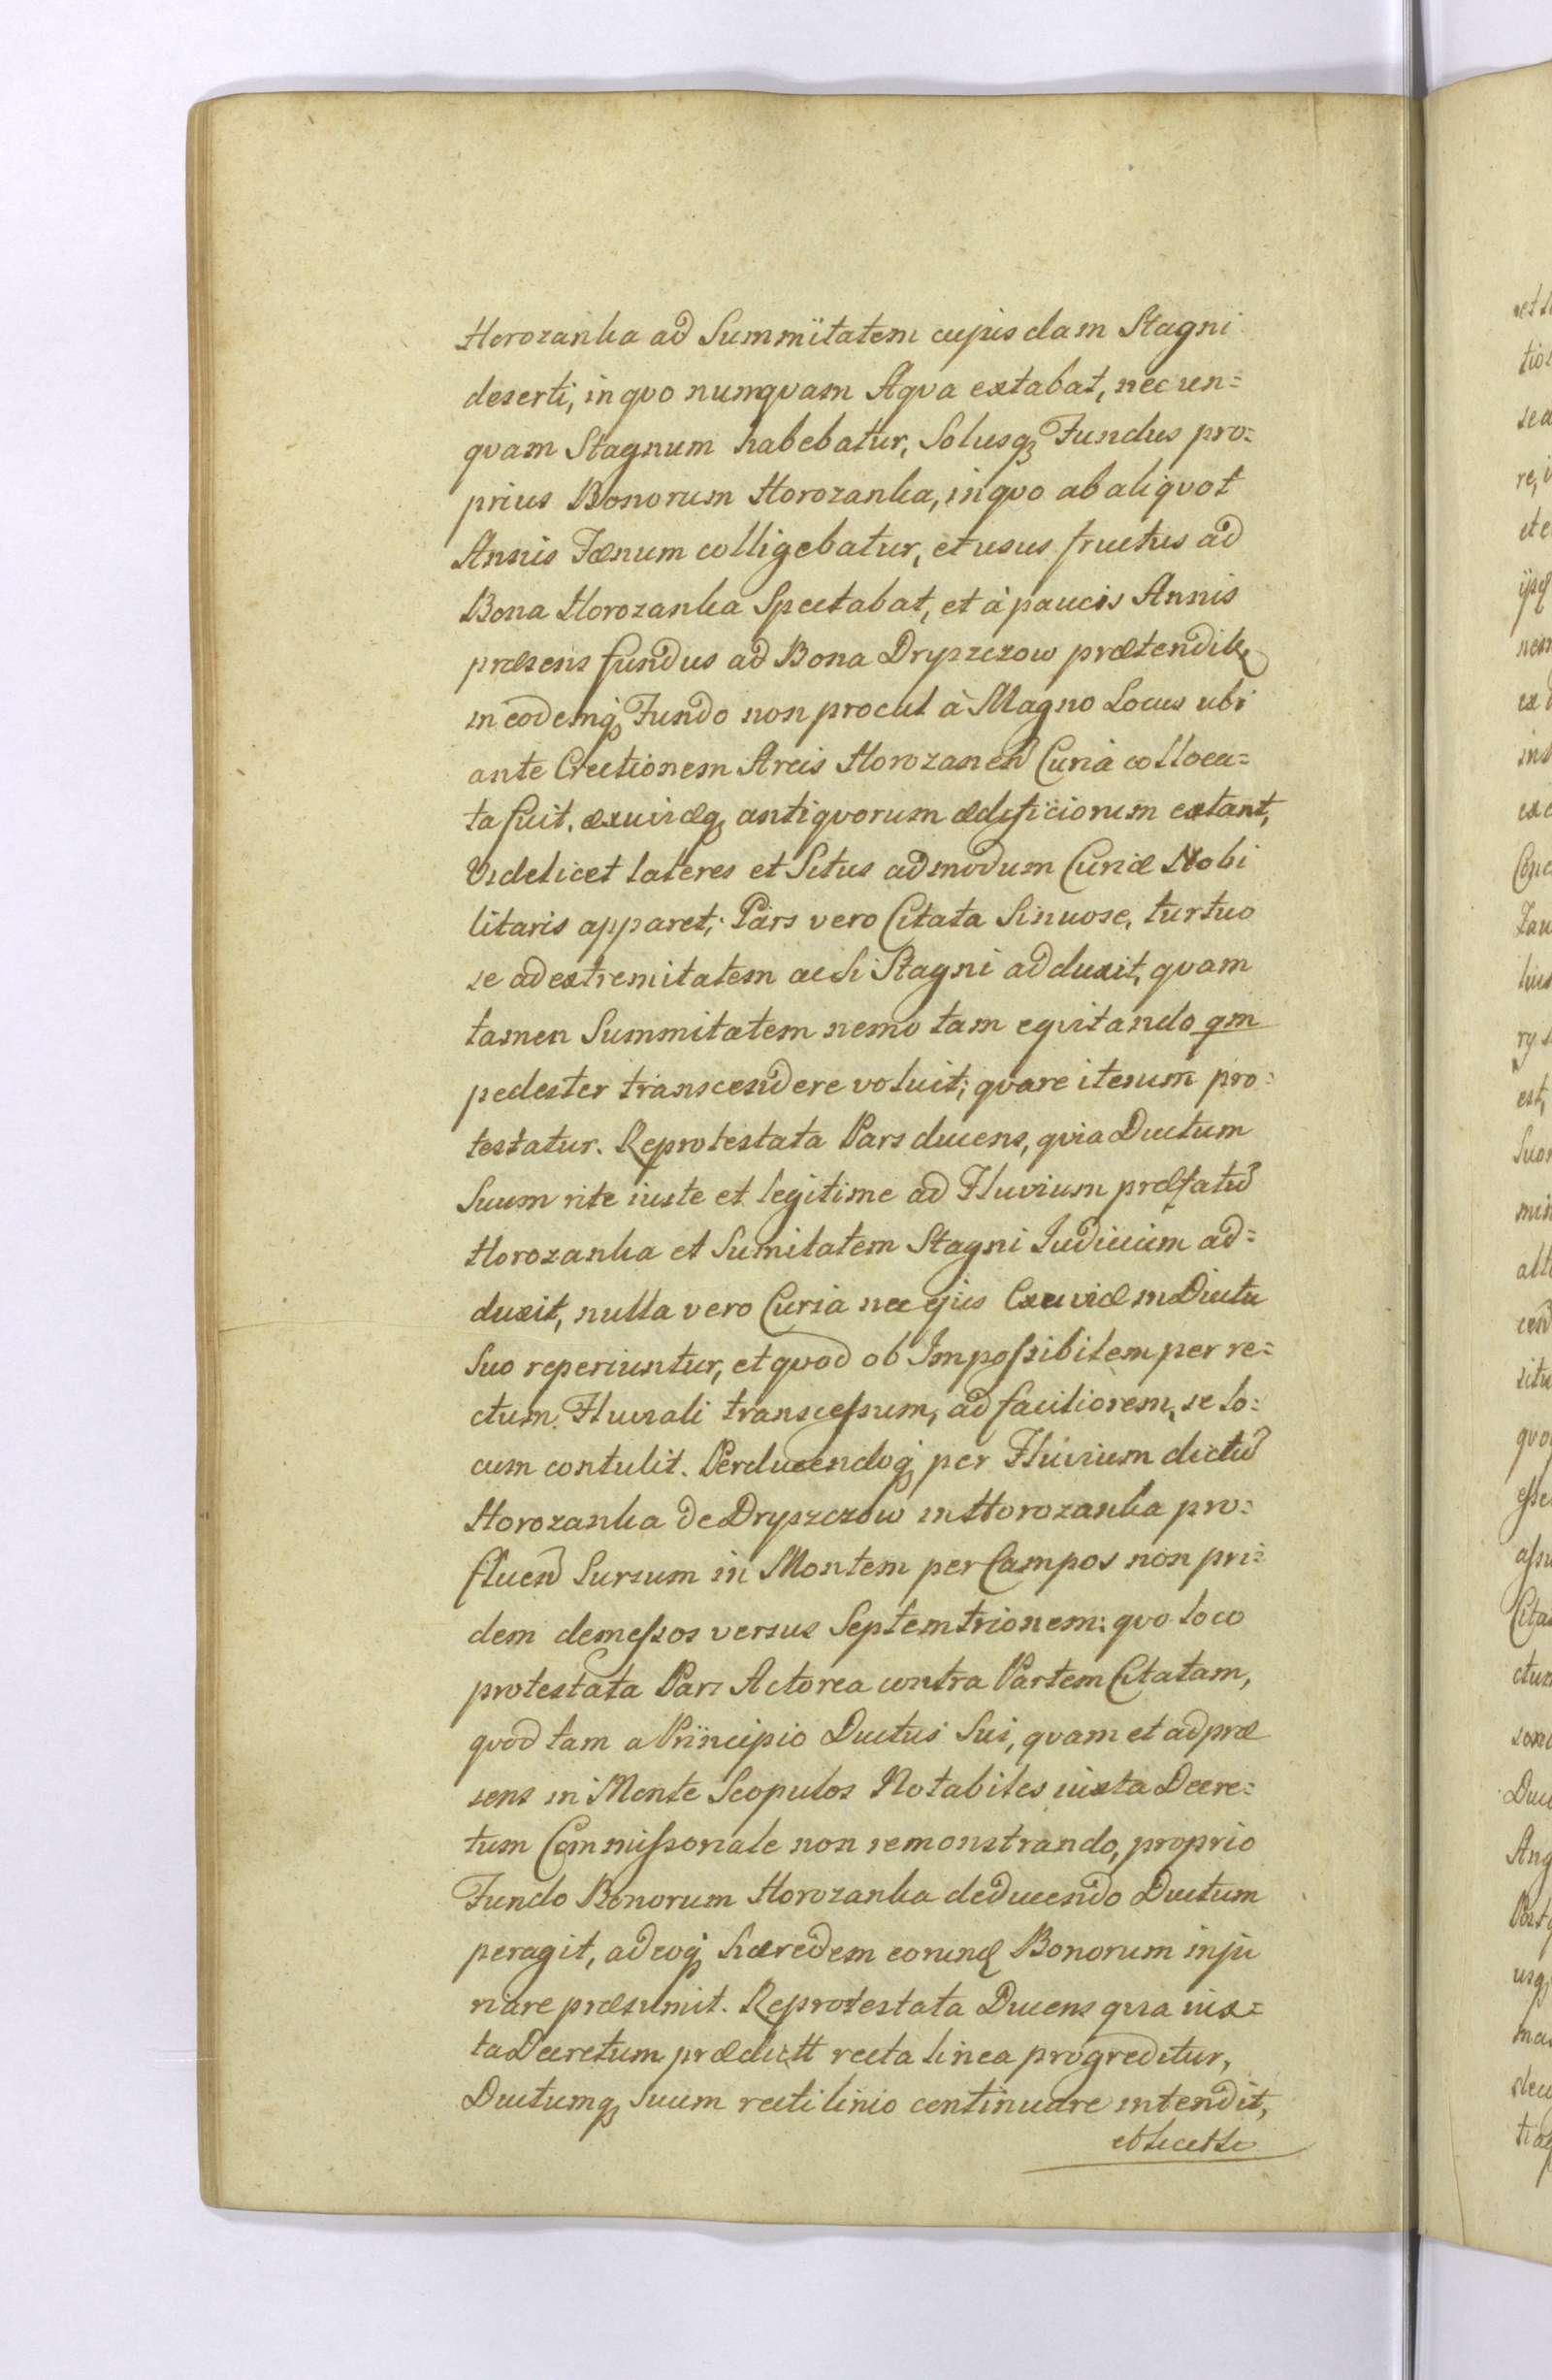 Horozanka ad Summitatem cujusdam Stagni
deserti, in qvo numqvam Aqva extabat, nec un=
qvam Stagnum habebatur, Solusq₃ Fundus pro=
prius Bonorum Horozanka, in qvo ab aliqvot
Annis Fænum colligebatur, et usus fructus ad
Bona Horozanka Spectabat, et à paucis Annis
præsens fundus ad Bona Dryszczow prætendit
in eodemq₃ Fundo non procul à Magno Locus ubi
ante Erectionem Arcis Horozanen Curia colloca=
ta fuit, æxuviæq₃ antiqvorum ædificiorum extant,
Videlicet lateres et Situs admodum Curiæ Nobi
litaris apparet; Pars vero Citata Sinuose, turtuo
se ad extremitatem acsi Stagni adduxit, qvam
tamen Summitatem nemo tam eqvitando qm
pedester transcendere voluit; qvare iterum pro=
testatur. Reprotestata Pars ducens, qvia Ductum
Suum rite iuste et legitime ad Fluvium præfatū
Horozanka et Sumitatem Stagni Iudicium ad=
duxit, nulla vero Curia nec ejus Exuviæ in Ductu
Suo reperiuntur, et qvod ob Impossibilem per re=
ctum Fluviali transcessum, ad faciliorem se lo=
cum contulit. Perducendoq₃ per Fluvium dictū
Horozanka de Dryszczow in Horozanka pro=
fluen Sursum in Montem per Campos non pri=
dem demessos versus Septemtrionem: qvo loco
protestata Pars Actorea contra Partem Citatam,
qvod tam a Principio Ductus Sui, qvam et ad præ
sens in Monte Scopulos Notabiles iuxta Decre=
tum Commissoriale non remonstrando, proprio
Fundo Bonorum Horozanka deducendo Ductum
peragit, adeoq₃ hæredem eorund Bonorum inju
riare præsumit. Reprotestata Ducens qvia iux=
ta Decretum prædictt recta linea progreditur,
Ductumq₃ Suum rectilinio continuare intendit,
et licet Se